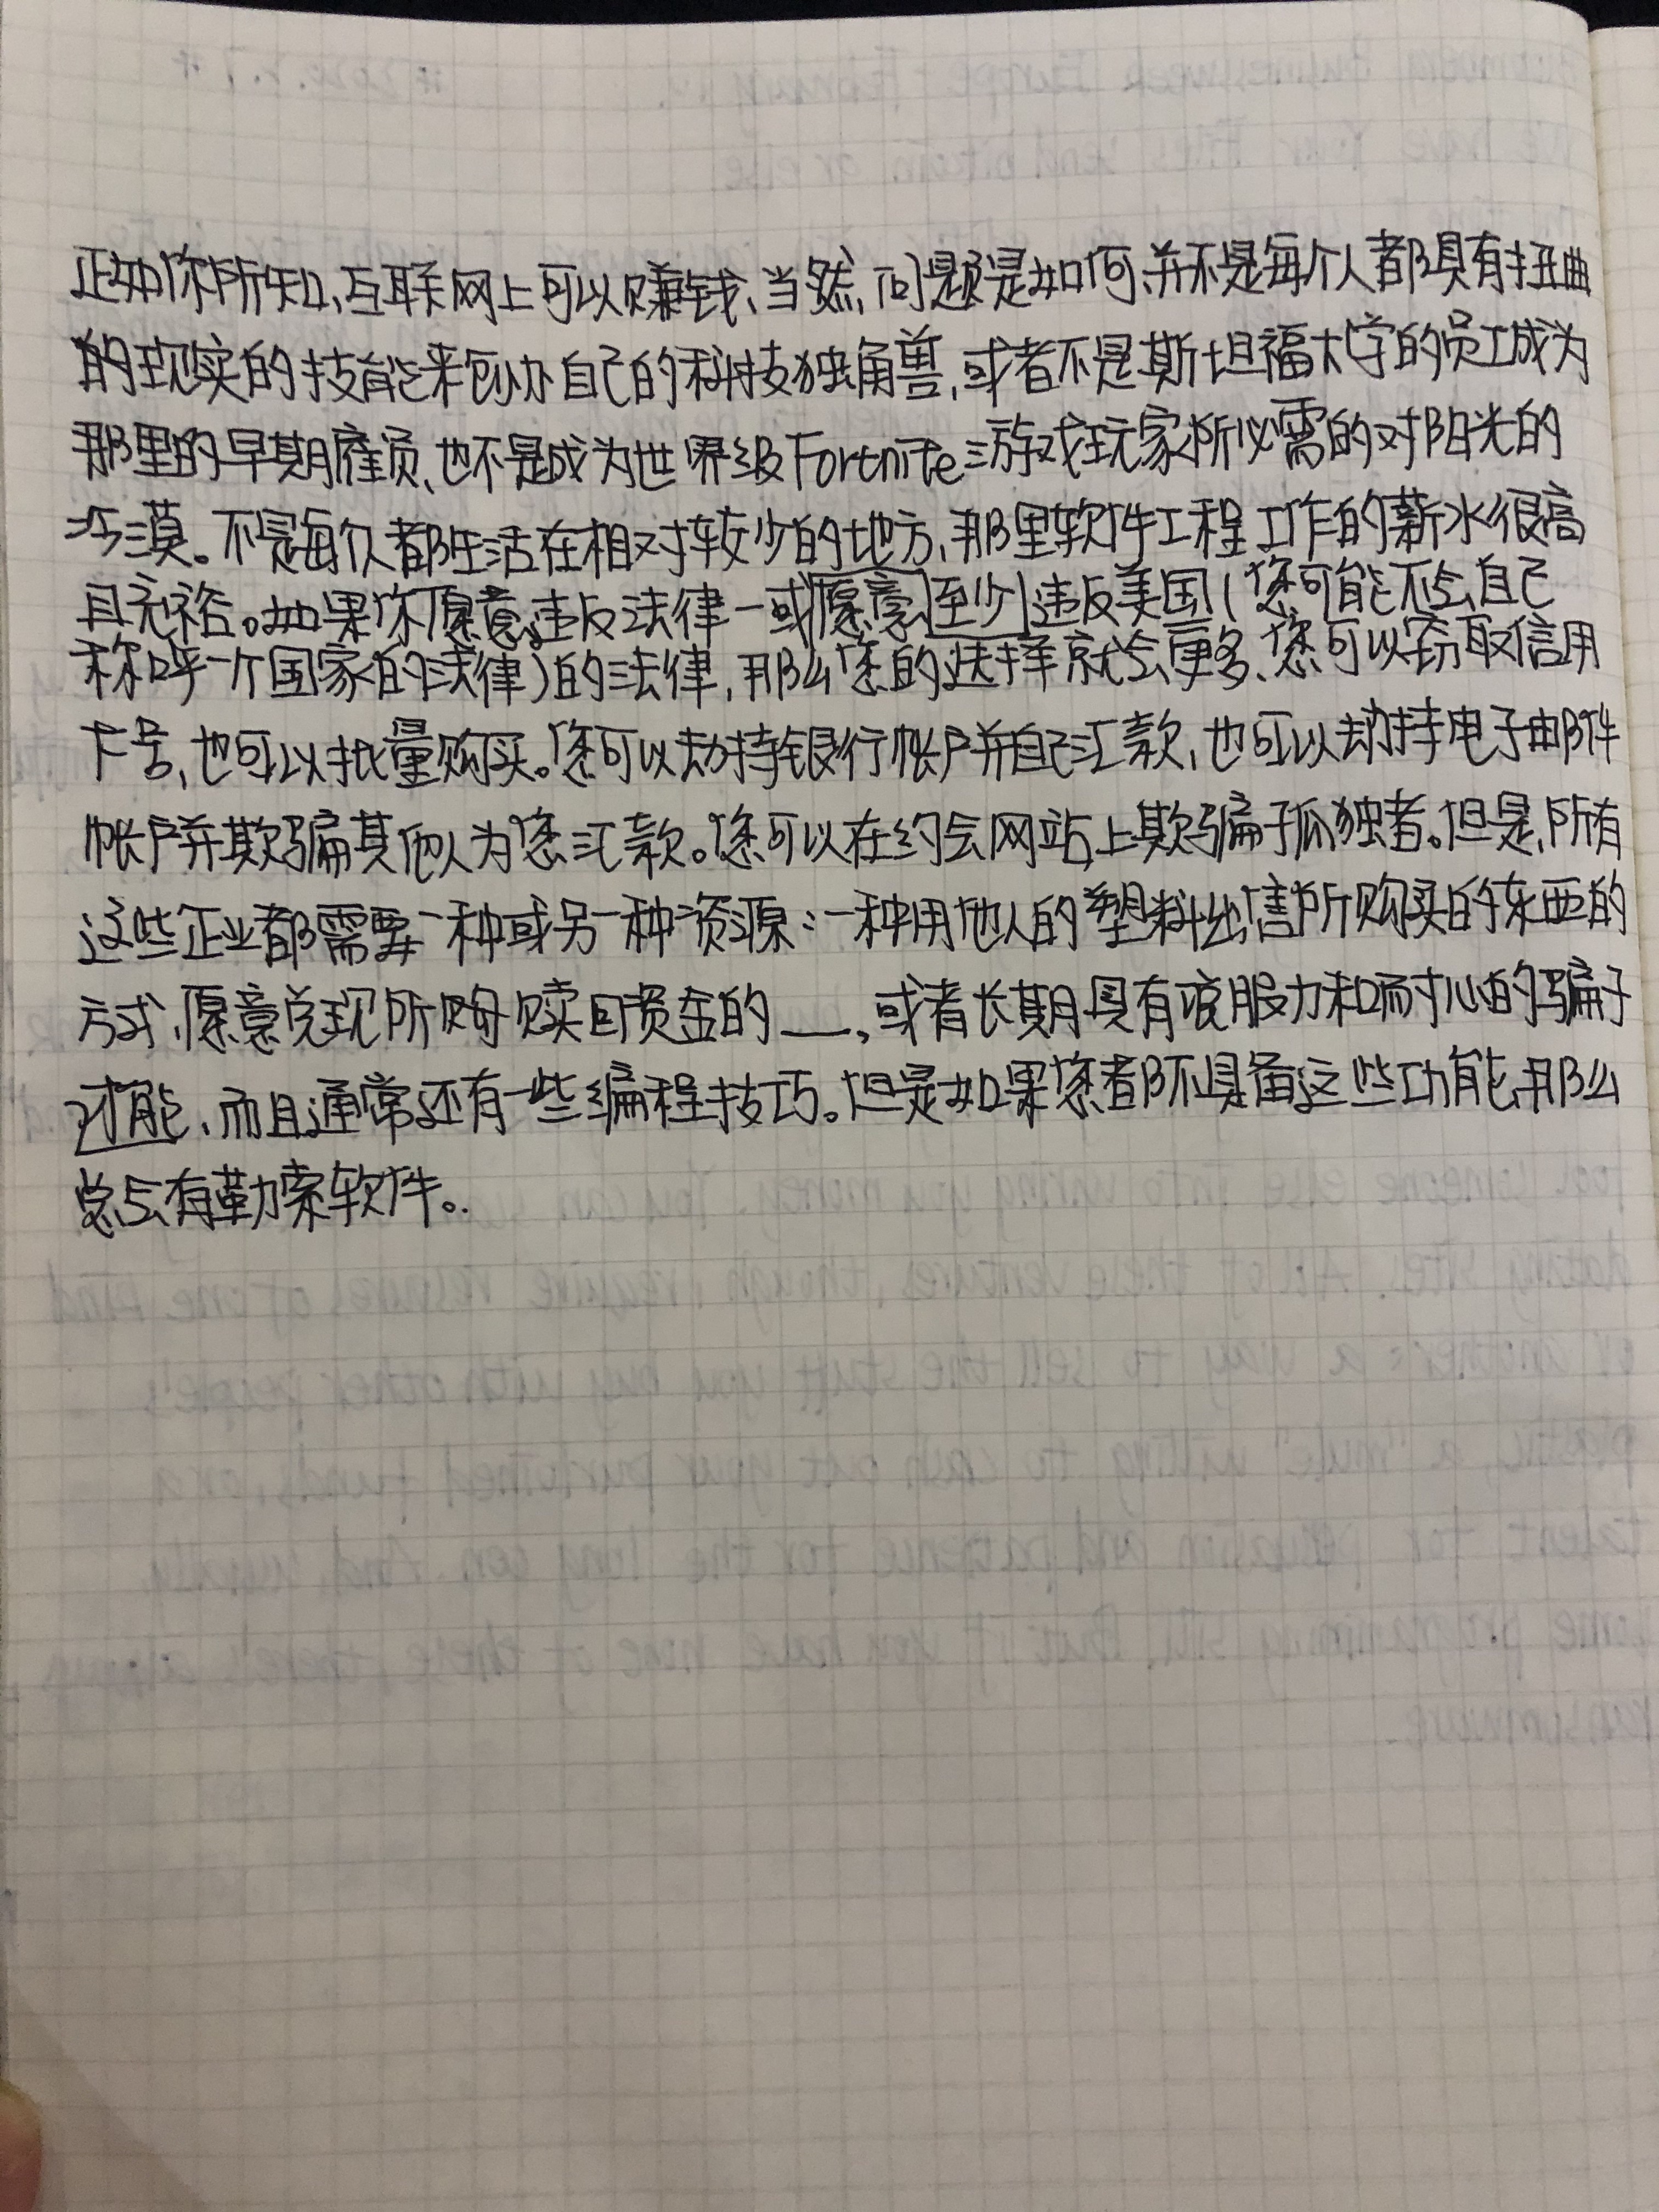 正如你所知，互联网上可以赚钱、当然，问题是如何、并不是每个人都具有扭曲
的现实的技能来创办自己的科技独角兽，或者不是斯坦福大学的员工成为
那里的早期雇员、也不是成为世界级Fortnite游戏玩家所必需的对阳光的
冷漠。不是每个人都生活在相对较少的地方，那里软件工程工作的薪水很高
且充裕。如果你愿意违反法律一或愿意至少违反美国(您可能不会自己
称呼一个国家的法律)的法律，那么您的选择就会更多、您可以窃取信用
卡号，也可以批量购买。您可以劫持银行帐户并自己汇款，也可以劫持电子邮件
帐户并欺骗其他人为您汇款。您可以在约会网站上欺骗孤独者。但是，所有
这些企业都需要一种或另一种资源：一种用他人的塑料出售所购买的东西的
方式、愿意兑现所购赎回资金的__，或者长期具有说服力和耐心的骗子
才能、而且通常还有一些编程技巧。但是如果您都不具备这些功能，那么
总会有勒索软件。